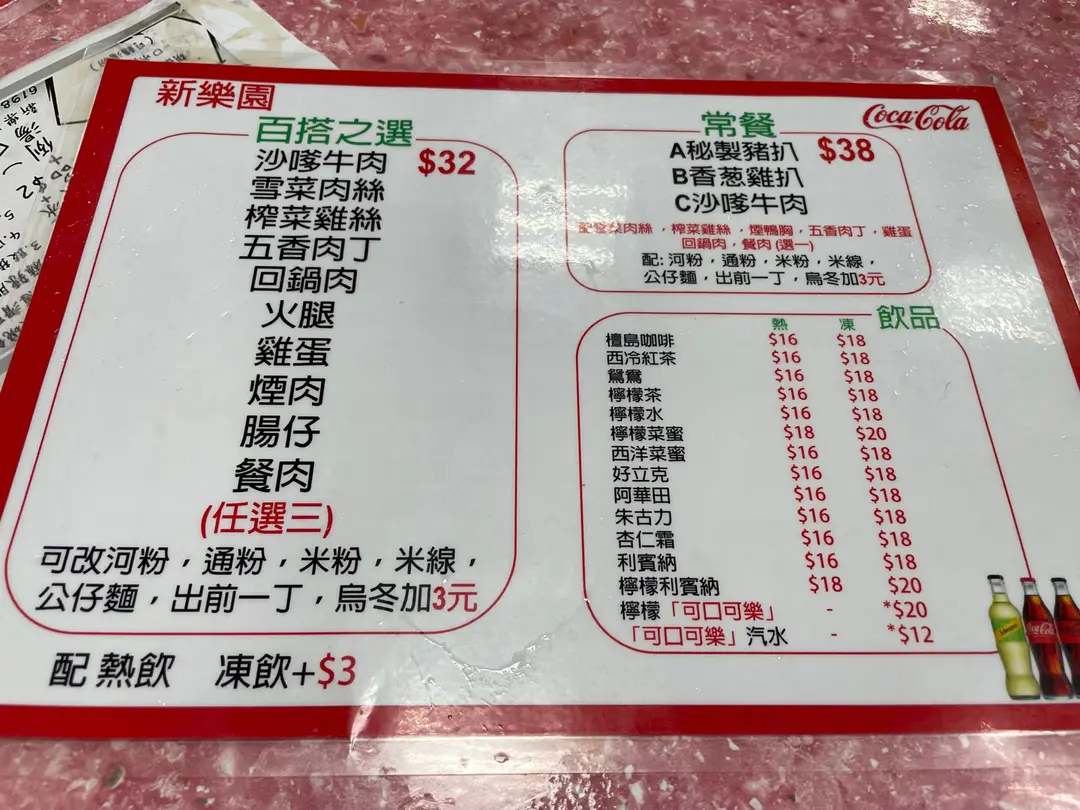 新樂園
百搭之選
沙嗲牛肉 $32
雪菜肉絲
榨菜雞絲
五香肉丁
回鍋肉
火腿
雞蛋
煙肉
腸仔
餐肉
(任選三)
可改河粉，通粉，米粉，米線，
公仔麵，出前一丁，烏冬加3元
配 熱飲 凍飲+$3
Coca-Cola
常餐
A秘製豬扒 $38
B香葱雞扒
C沙嗲牛肉
菜肉絲，榨菜雞絲，煙鴨胸，五香肉丁，雞蛋
回鍋肉，餐肉 (選一)
配: 河粉，通粉，米粉，米線，
公仔麵，出前一丁，烏冬加3元
飲品
熱 凍
檀島咖啡 $16 $18
西冷紅茶 $16 $18
鴛鴦 $16 $18
檸檬茶 $16 $18
檸檬水 $16 $18
檸檬菜蜜 $18 $20
西洋菜蜜 $16 $18
好立克 $16 $18
阿華田 $16 $18
朱古力 $16 $18
杏仁霜 $16 $18
利賓納 $16 $18
檸檬利賓納 $18 $20
檸檬「可口可樂」 - *$20
「可口可樂」汽水 - *$12